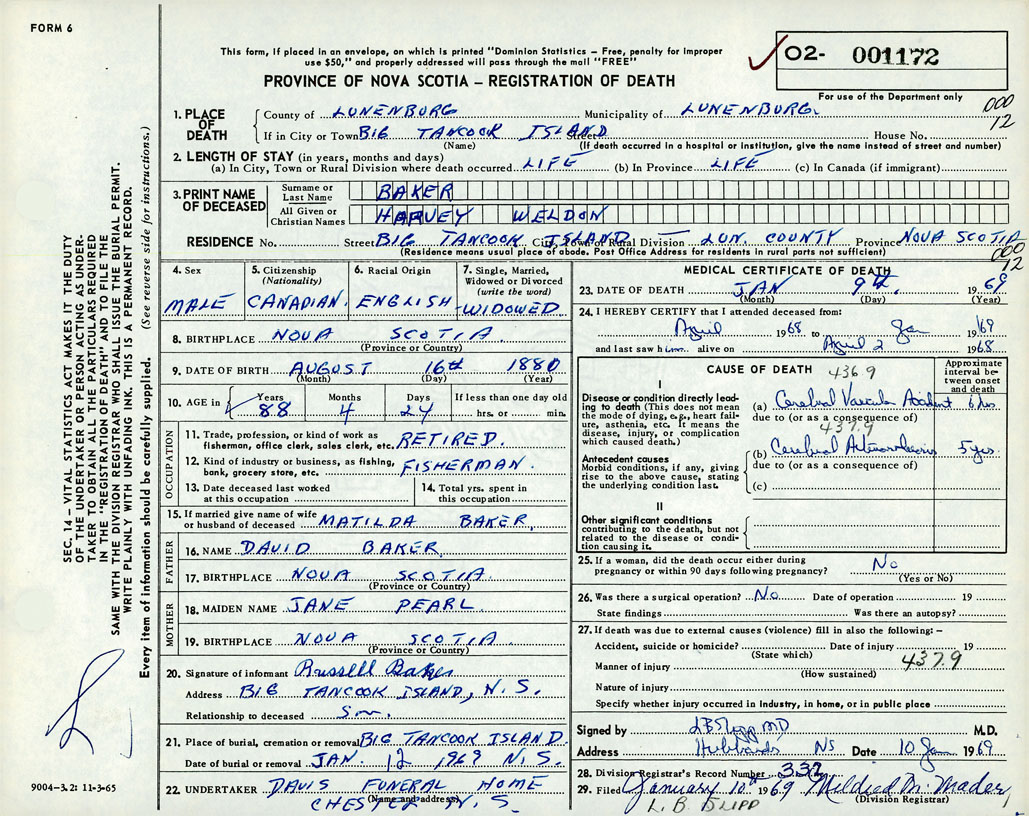 FORM 6
This form, if placed in an envelope, on which is printed "Dominion Statistics – Free, penalty for improper
use $50," and properly addressed will pass through the mail "FREE"
PROVINCE OF NOVA SCOTIA – REGISTRATION OF DEATH
02- 001172
For use of the Department only
000
12
1. PLACE OF DEATH
County of LUNENBURG Municipality of LUNENBURG.
If in City or Town BIG TANCOOK ISLAND Street House No.
(Name) (If death occurred in a hospital or institution, give the name instead of street and number)
2. LENGTH OF STAY (in years, months and days)
(a) In City, Town or Rural Division where death occurred LIFE (b) In Province LIFE (c) In Canada (if immigrant)
3. PRINT NAME OF DECEASED
Surname or Last Name BAKER
All Given or Christian Names HARVEY WELDON
RESIDENCE No. Street BIG TANCOOK ISLAND City, Town or Rural Division – LUN. COUNTY Province NOVA SCOTIA
(Residence means usual place of abode. Post Office Address for residents in rural parts not sufficient)
000
12
4. Sex MALE
5. Citizenship (Nationality) CANADIAN
6. Racial Origin ENGLISH
7. Single, Married, Widowed or Divorced (write the word) WIDOWED
8. BIRTHPLACE NOVA SCOTIA
(Province or Country)
9. DATE OF BIRTH AUGUST 16th 1880
(Month) (Day) (Year)
10. AGE in Years 88 Months 4 Days 24 If less than one day old hrs. or min.
OCCUPATION
11. Trade, profession, or kind of work as fisherman, office clerk, sales clerk, etc. RETIRED.
12. Kind of industry or business, as fishing, bank, grocery store, etc. FISHERMAN.
13. Date deceased last worked at this occupation
14. Total yrs. spent in this occupation
15. If married give name of wife or husband of deceased MATILDA BAKER.
FATHER
16. NAME DAVID BAKER.
17. BIRTHPLACE NOVA SCOTIA
(Province or Country)
MOTHER
18. MAIDEN NAME JANE PEARL
19. BIRTHPLACE NOVA SCOTIA
(Province or Country)
20. Signature of informant Russell Baker
Address BIG TANCOOK ISLAND, N.S.
Relationship to deceased Son.
21. Place of burial, cremation or removal BIG TANCOOK ISLAND.
Date of burial or removal JAN. 12 1969 N.S.
22. UNDERTAKER DAVIS FUNERAL HOME
(Name and address)
CHESTER N.S.
MEDICAL CERTIFICATE OF DEATH
23. DATE OF DEATH JAN 9th. 1969
(Month) (Day) (Year)
24. I HEREBY CERTIFY that I attended deceased from:
April 1968 to Jan 1969
and last saw him alive on April 2 1968.
CAUSE OF DEATH 4369
Approximate interval between onset and death
I
Disease or condition directly leading to death (This does not mean the mode of dying, e.g., heart failure, asthenia, etc. It means the disease, injury, or complication which caused death.)
(a) Cerebral Vascular Accident 6 hrs
due to (or as a consequence of)
437.9
Antecedent causes
Morbid conditions, if any, giving rise to the above cause, stating the underlying condition last.
(b) Cerebral Arteriosclerosis 5 yrs.
due to (or as a consequence of)
(c)
II
Other significant conditions contributing to the death, but not related to the disease or condition causing it.
25. If a woman, did the death occur either during pregnancy or within 90 days following pregnancy? No
(Yes or No)
26. Was there a surgical operation? No Date of operation 19
State findings Was there an autopsy?
27. If death was due to external causes (violence) fill in also the following: –
Accident, suicide or homicide? Date of injury 19
(State which)
Manner of injury 437.9
(How sustained)
Nature of injury
Specify whether injury occurred in industry, in home, or in public place
Signed by M.D.
Address Hubbards NS Date 10 Jan 1969
28. Division Registrar's Record Number 332
29. Filed January 10th 1969 Mildred M. Mader
(Division Registrar)
L. B.
SEC. 14 – VITAL STATISTICS ACT MAKES IT THE DUTY
OF THE UNDERTAKER OR PERSON ACTING AS UNDER-
TAKER TO OBTAIN ALL THE PARTICULARS REQUIRED
IN THE "REGISTRATION OF DEATH" AND TO FILE THE
SAME WITH THE DIVISION REGISTRAR WHO SHALL ISSUE THE BURIAL PERMIT.
WRITE PLAINLY WITH UNFADING INK. THIS IS A PERMANENT RECORD.
Every item of information should be carefully supplied. (See reverse side for instructions.)
9004-3.2: 11-3-65